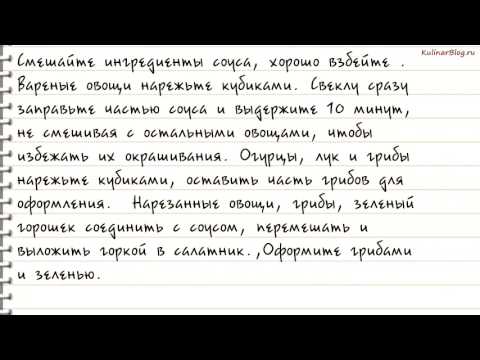 KulinarBlog.ru
Смешайте ингредиенты соуса, хорошо взбейте .
Вареные овощи нарежьте кубиками. Свеклу сразу
заправьте частью соуса и выдержите 10 минут,
не смешивая с остальными овощами, чтобы
избежать их окрашивания. Огурцы, лук и грибы
нарежьте кубиками, оставить часть грибов для
оформления. Нарезанные овощи, грибы, зеленый
горошек соединить с соусом, перемешать и
выложить горкой в салатник. ,Оформите грибами
и зеленью.